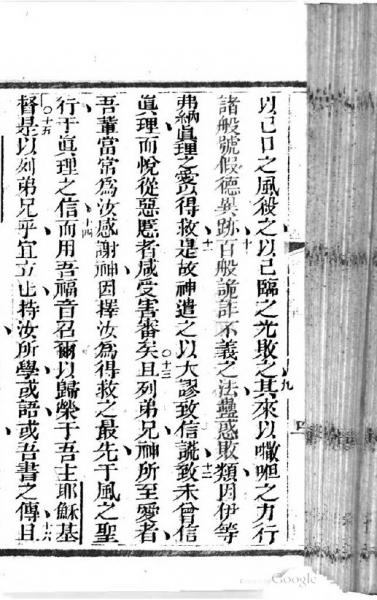 以己口之風殺之以己臨之光敗之其來以囒呾之力行
諸般號假德異跡百般詭詐不義之法蠱惑敗類因伊等
弗納眞理之愛以得救是故神遣之以大謬致信謊致未曾信
眞理而悅從惡慝者咸受害審矣且列弟兄神所至愛者
吾輩當常為汝感謝神因擇汝為得救之最先于風之聖
行于眞理之信而用吾福音召爾以歸榮于吾主耶穌基
督是以列弟兄乎宜立且持汝所學或語或吾書之傳且
九
十
十一
十二
〇十三
十四
〇十五
十六
Google